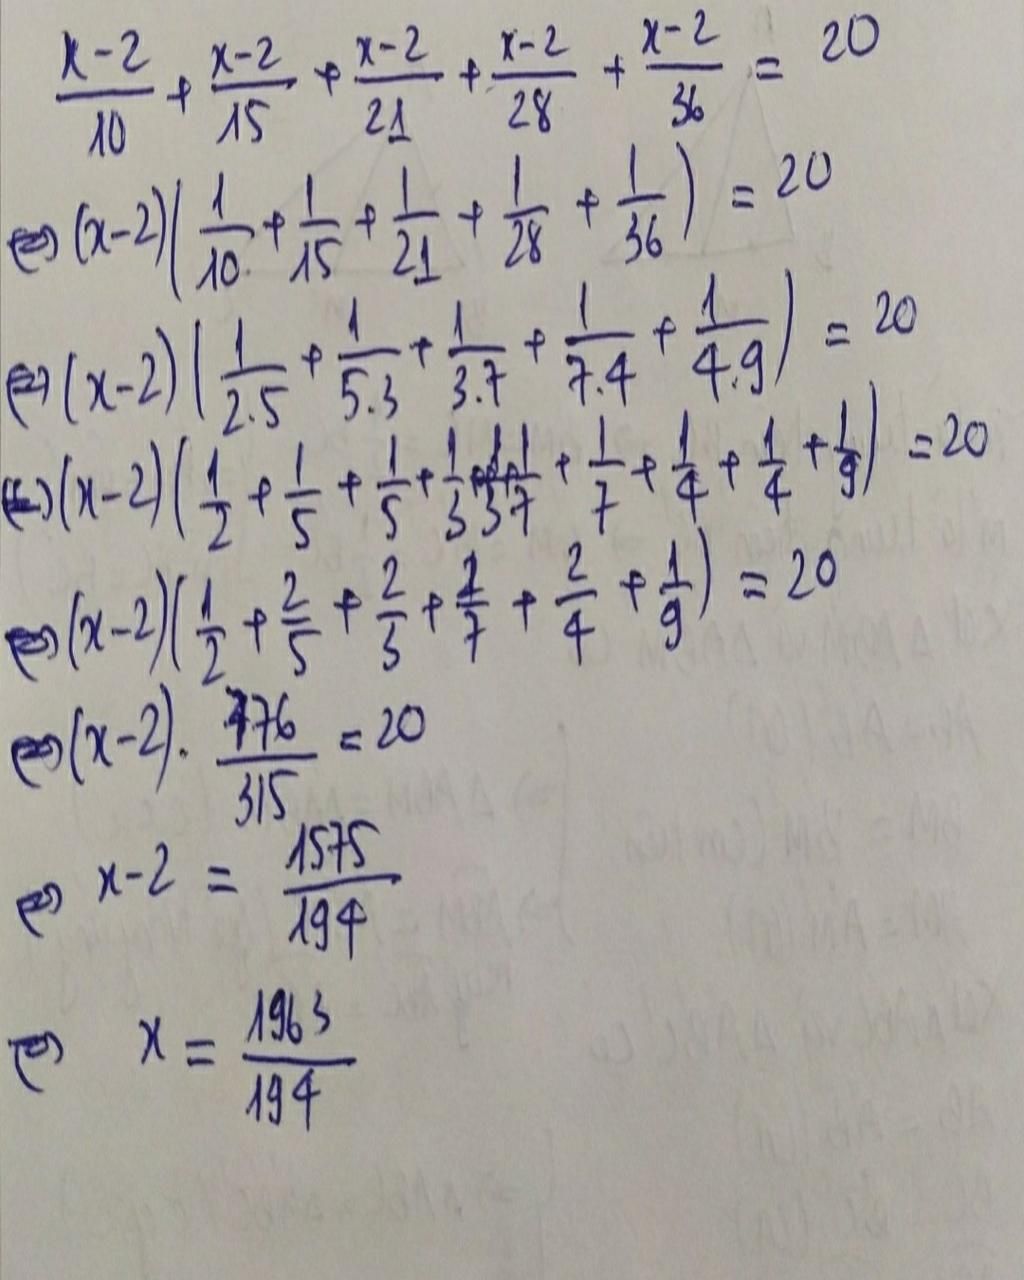 x-2/10 + x-2/15 + x-2/21 + x-2/28 + x-2/36 = 20
⇔ (x-2)(1/10 + 1/15 + 1/21 + 1/28 + 1/36) = 20
⇔ (x-2)(1/2.5 + 1/5.3 + 1/3.7 + 1/7.4 + 1/4.9) = 20
⇔ (x-2)(1/2 + 1/5 + 1/5 + 1/3 + 1/3 + 1/7 + 1/7 + 1/4 + 1/4 + 1/9) = 20
⇔ (x-2)(1/2 + 2/5 + 2/3 + 2/7 + 2/4 + 1/9) = 20
⇔ (x-2). 776/315 = 20
⇔ x-2 = 1575/194
⇔ x = 1963/194